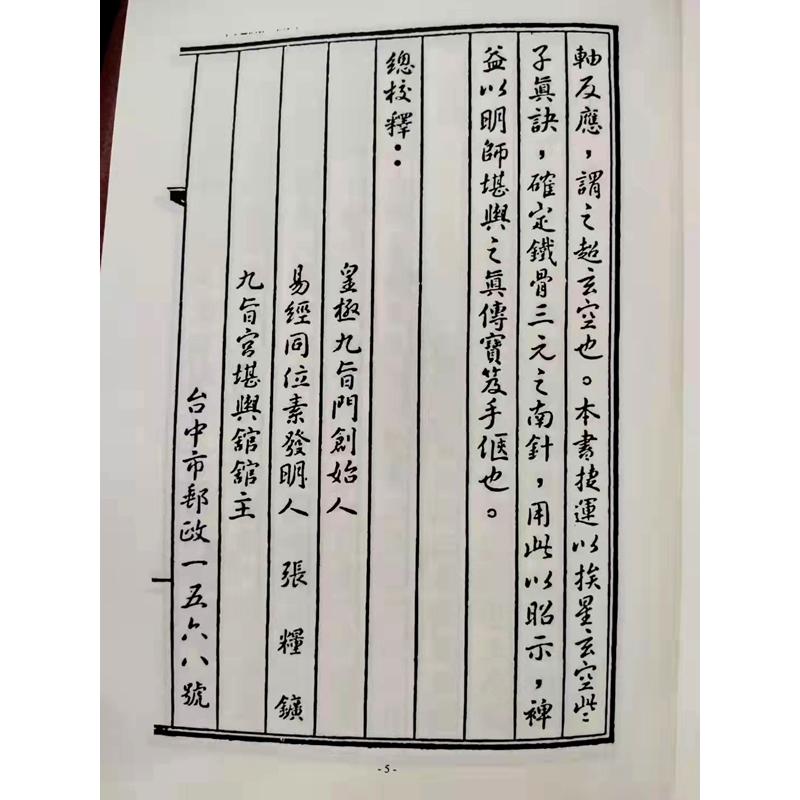 軸反應，謂之超玄空也。本書捷運以挨星玄空些
子真訣，確定鐵骨三元之南針，用此以昭示，裨
益以明師堪輿之真傳寶笈手偃也。
總校釋：
皇極九旨門創始人
易經同位素發明人 張 糧 鑛
九旨宮堪輿舘舘主
台中市郵政一五六八號
- 5 -